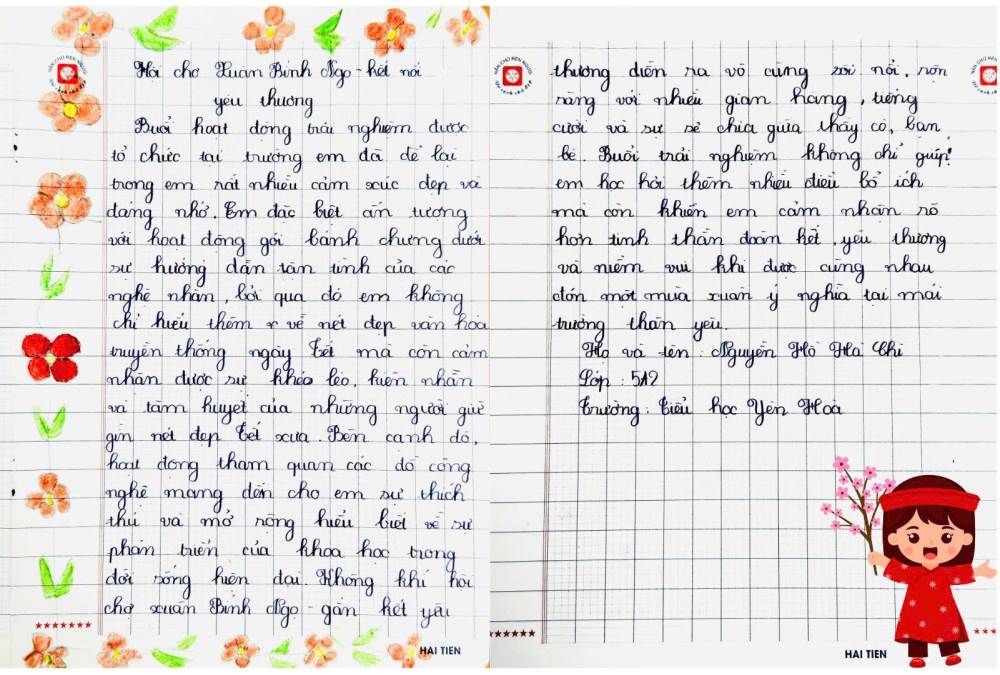 Hội chợ Xuân Bính Ngọ - kết nối
yêu thương
Buổi hoạt động trải nghiệm được
tổ chức tại trường em đã để lại
trong em rất nhiều cảm xúc đẹp và
đáng nhớ. Em đặc biệt ấn tượng
với hoạt động gói bánh chưng dưới
sự hướng dẫn tận tình của các
nghệ nhân, bởi qua đó em không
chỉ hiểu thêm về nét đẹp văn hóa
truyền thống ngày Tết mà còn cảm
nhận được sự khéo léo, kiên nhẫn
và tâm huyết của những người giữ
gìn nét đẹp Tết xưa. Bên cạnh đó,
hoạt động tham quan các đồ công
nghệ mang đến cho em sự thích
thú và mở rộng hiểu biết về sự
phán triển của khoa học trong
đời sống hiện đại. Không khí hội
chợ xuân Bính Ngọ - gắn kết yêu
HAI TIEN
thương diễn ra vô cùng sôi nổi, rộn
ràng với nhiều gian hàng, tiếng
cười và sự sẻ chia giữa thầy cô, bạn
bè. Buổi trải nghiệm không chỉ giúp
em học hỏi thêm nhiều điều bổ ích
mà còn khiến em cảm nhận rõ
hơn tinh thần đoàn kết, yêu thương
và niềm vui khi được cùng nhau
đón một mùa xuân ý nghĩa tại mái
trường thân yêu.
Họ và tên: Nguyễn Hồ Hà Chi
Lớp: 5A2
Trường: Tiểu học Yên Hoà
HAI TIEN